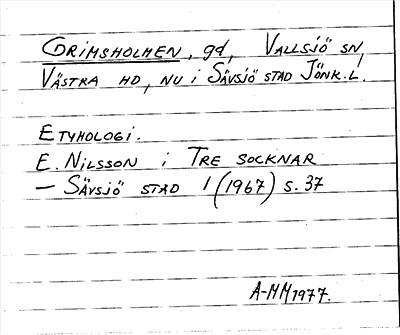 GRIMSHOLMEN, gd, VALLSJÖ SN,
VÄSTRA HD, NU i SÄVSJÖ STAD JÖNK.L.
ETYMOLOGI.
E. NILSSON i TRE SOCKNAR
– SÄVSJÖ STAD 1 (1967) S. 37
A-MM1977.